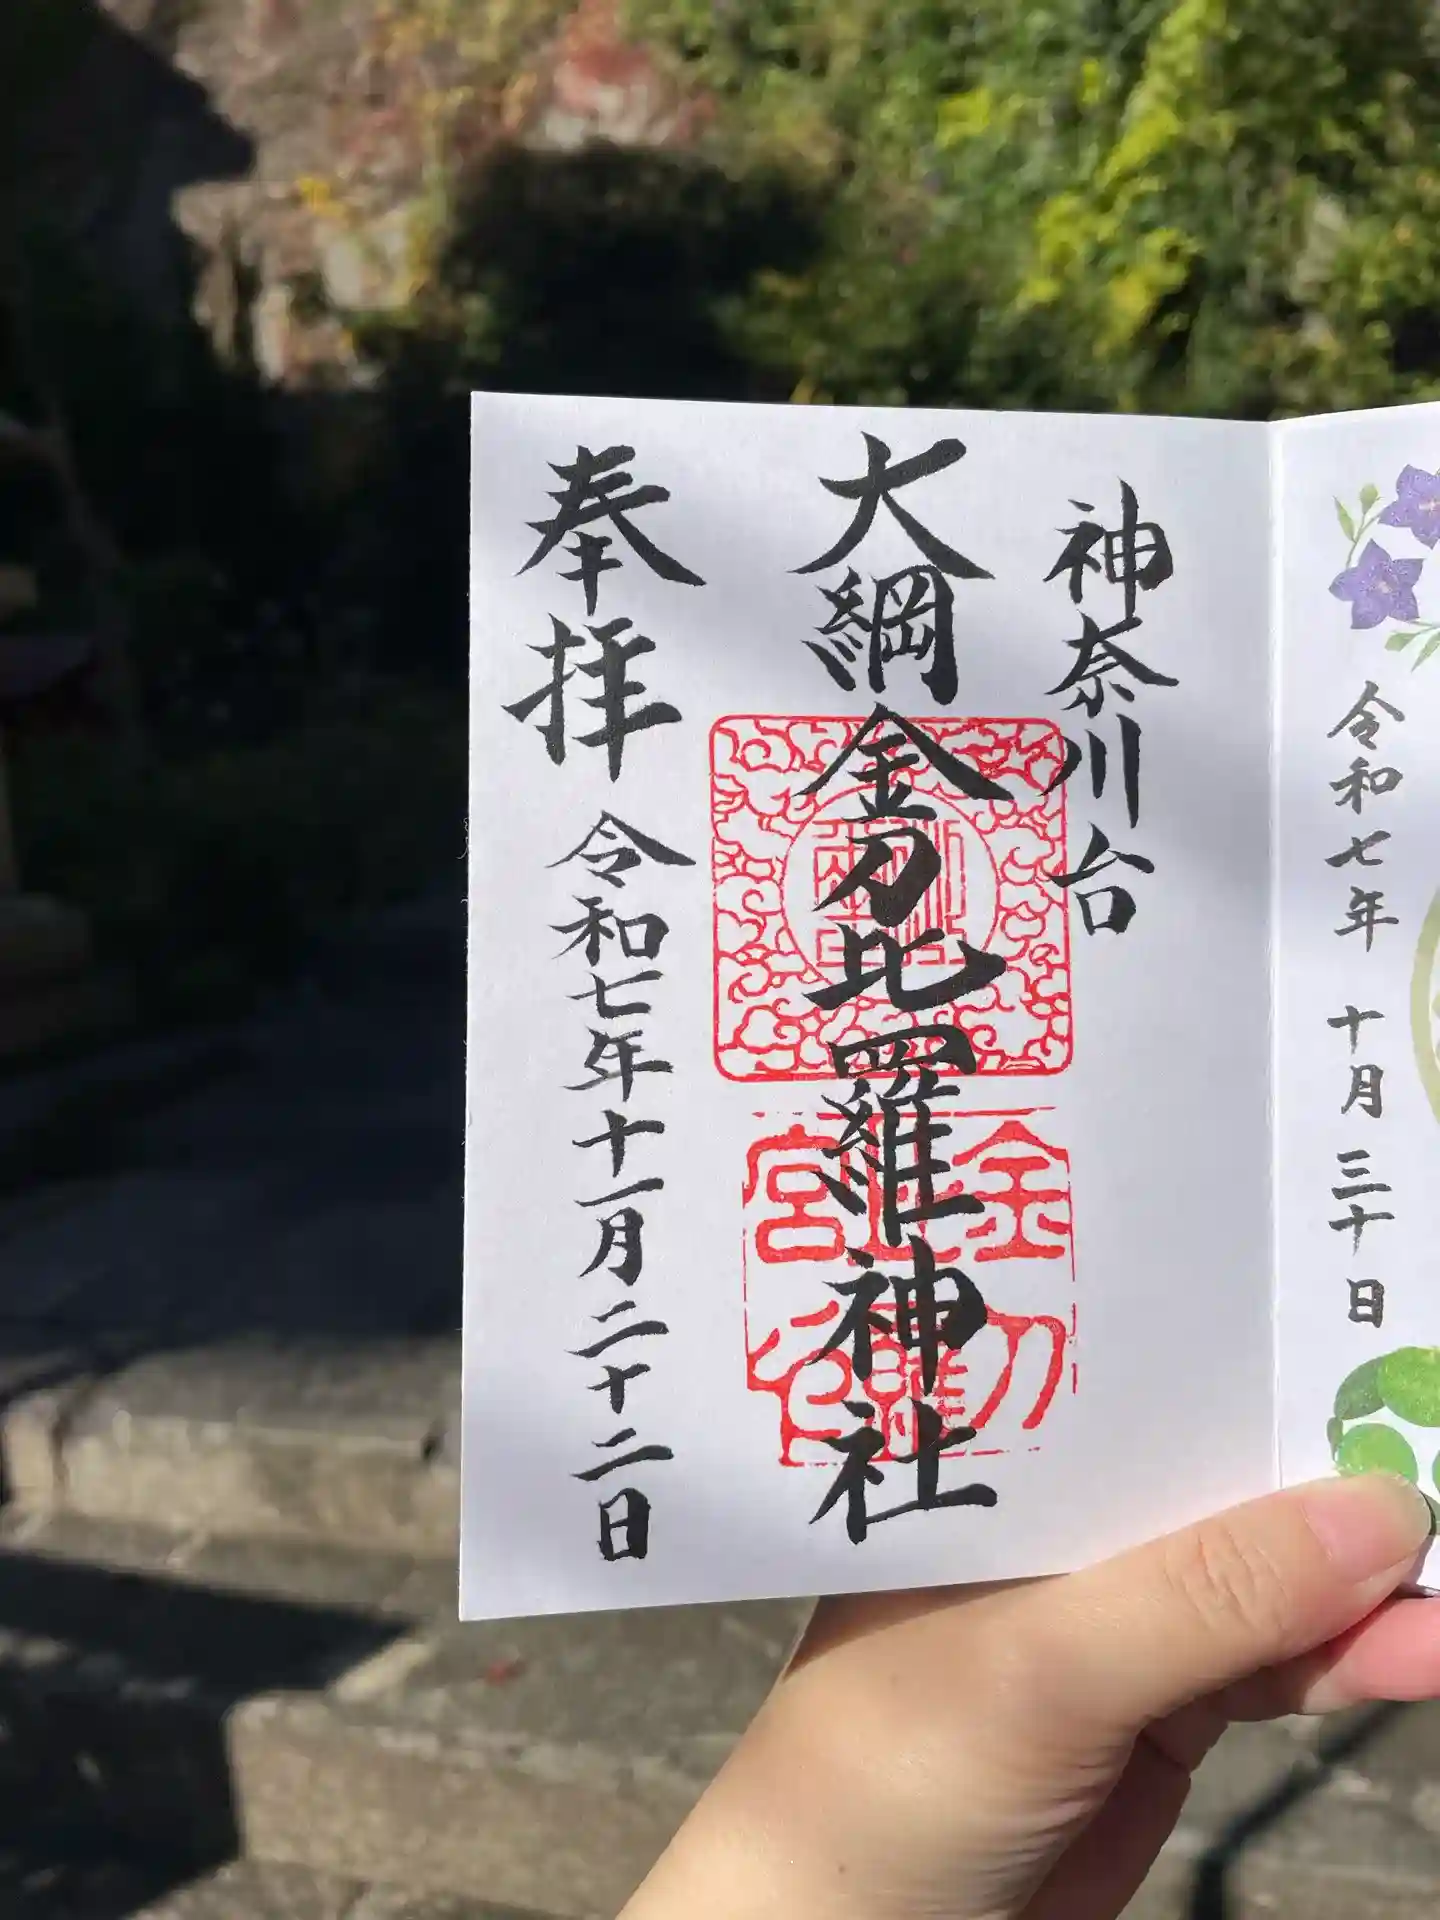 令和七年 十月 三十日
神奈川台
大綱金刀比羅神社
奉拝 令和七年十一月二十二日